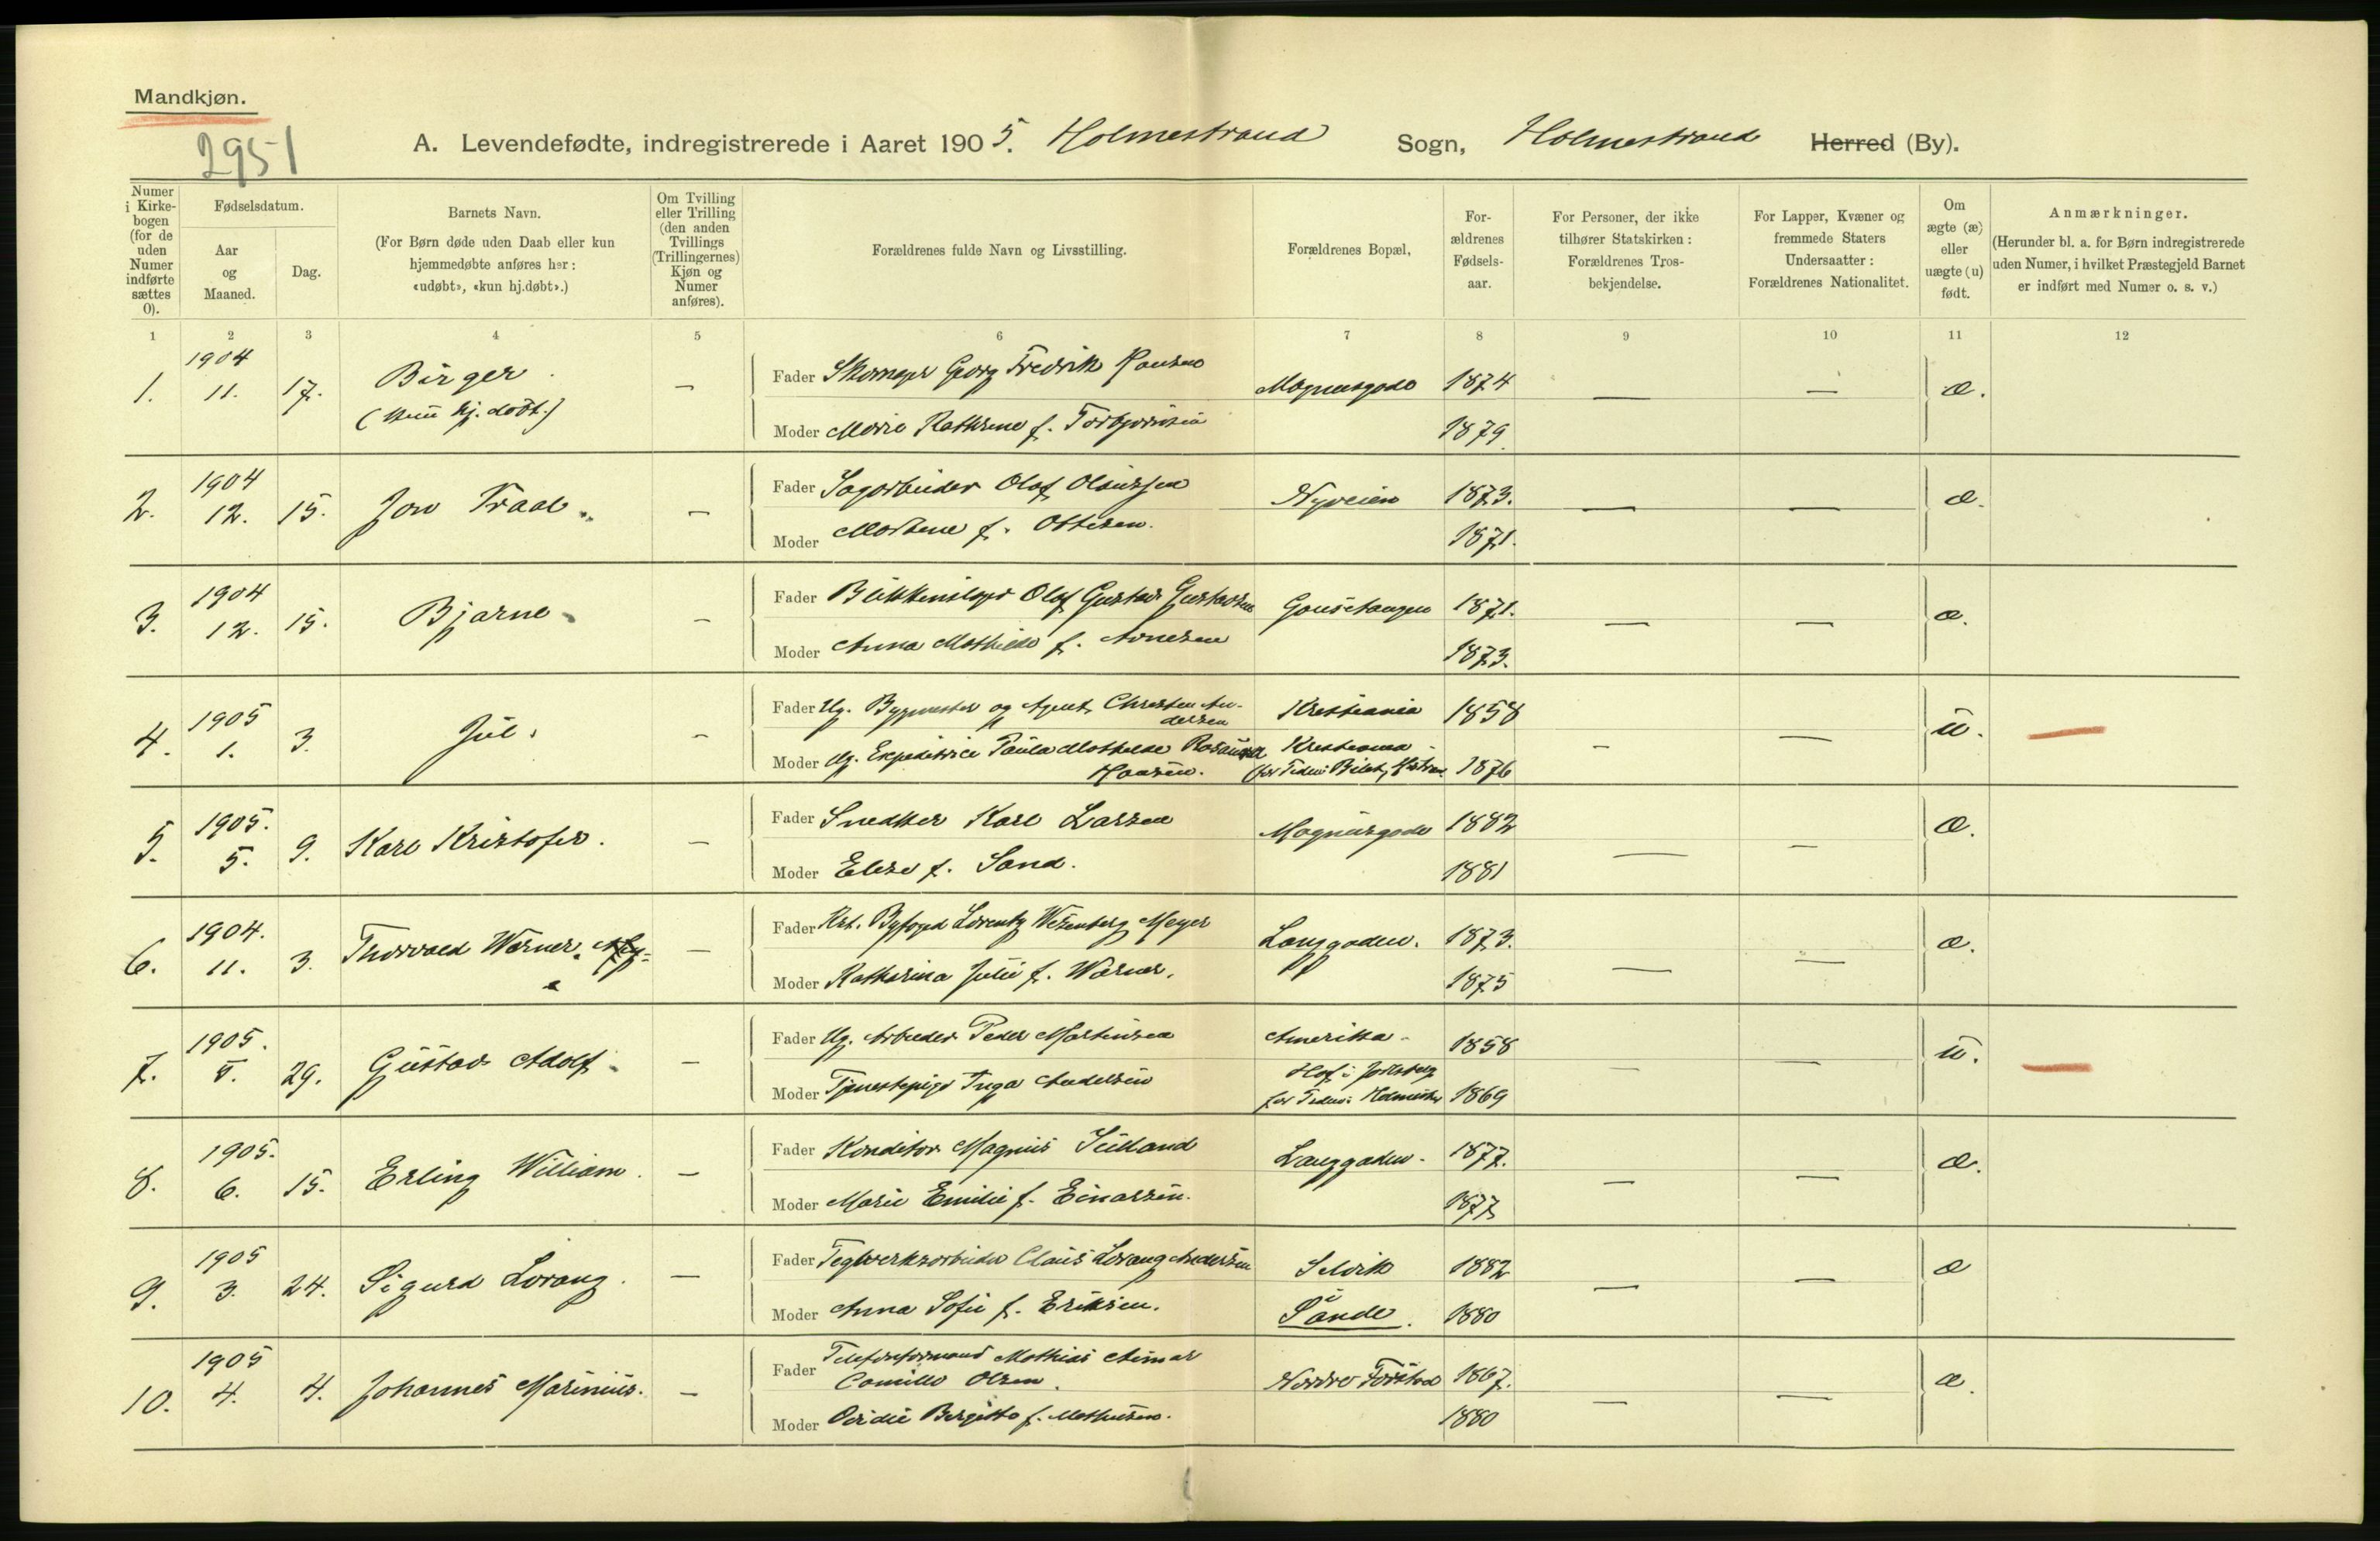 Mandkjøn.
2951
A. Levendefødte, indregistrerede i Aaret 1905. Holmestrand Sogn, Holmestrand Herred (By).
Numer i Kirke-bogen (for de uden Numer indførte sættes 0).
Fødselsdatum.
Aar og Maaned.
Dag.
Barnets Navn.
(For Børn døde uden Daab eller kun
hjemmedøbte anføres her:
«udøbt», «kun hj.døbt».)
Om Tvilling
eller Trilling
(den anden
Tvillings
(Trillingernes)
Kjøn og
Numer
anføres).
Forældrenes fulde Navn og Livsstilling.
Forældrenes Bopæl,
For-
ældrenes
Fødsels-
aar.
For Personer, der ikke
tilhører Statskirken:
Forældrenes Tros-
bekjendelse.
For Lapper, Kvæner og
fremmede Staters
Undersaatter:
Forældrenes Nationalitet.
Om
ægte (æ)
eller
uægte (u)
født.
Anmærkninger.
(Herunder bl. a. for Børn indregistrerede
uden Numer, i hvilket Præstegjeld Barnet
er indført med Numer o. s. v.)
1 2 3 4 5 6 7 8 9 10 11 12
1. 1904 11. 17. Birger. (kun hj. døbt.) — Fader Skomager Georg Fredrik Hansen Magnusgade 1874 — — æ.
Moder Marie Kathrine f. Torbjørnsen 1879.
2. 1904 12. 15. Jon Traal. — Fader Sagarbeider Olaf Olaussen Nyveien 1873. — — æ.
Moder Marthene f. Ottesen. 1871.
3. 1904 12. 15. Bjarne. — Fader Olaf Gustav Gustavsen 1871. — — æ.
Moder Anna Mathilde f. Arnesen 1873.
4. 1905 1. 3. Jul. — Fader Ug. Bygmester og Agent Christen An-
dersen Kristiania 1858 — — u. —
Moder Ug. Expeditrice Paula Mathilde
Hansen. Kristiania 1876
5. 1905. 5. 9. Karl Kristofer. — Fader Snedker Karl Larsen Magnusgade 1882 — — æ.
Moder Elise f. Sand. 1881
6. 1904. 11. 3. Thorvald Wärner. — Fader Kst. Byfoged Lorentz Wesenberg Meyer Langgaden. 1873. — — æ.
Moder Katharina Julie f. Wärner. 1875
7. 1905. 5. 29. Gustav Adolf. — Fader Ug. Arbeider Peder Martinsen Amerika. 1858 — — u. —
Moder Tjenestepige Inga Andersen Hof i Jarlsberg
for Tiden: 1869
8. 1905. 6. 15. Erling William. — Fader Konditor Magnus Langgaden. 1877. — — æ.
Moder Marie Emilie f. Einarsen. 1877
9. 1905 3. 24. Sigurd Lorang. — Fader Teglverksarbeider Claus Lorang Andersen Selvik 1882 — — æ
Moder Anna Sofie f. Eriksen. i Sande. 1880
10. 1905 4. 4. Johannes Marinius. — Fader Telefonformand Mathias
Camillo Olsen. Nordre 1867. — — æ.
Moder Birgitte f. Mathisen. 1880